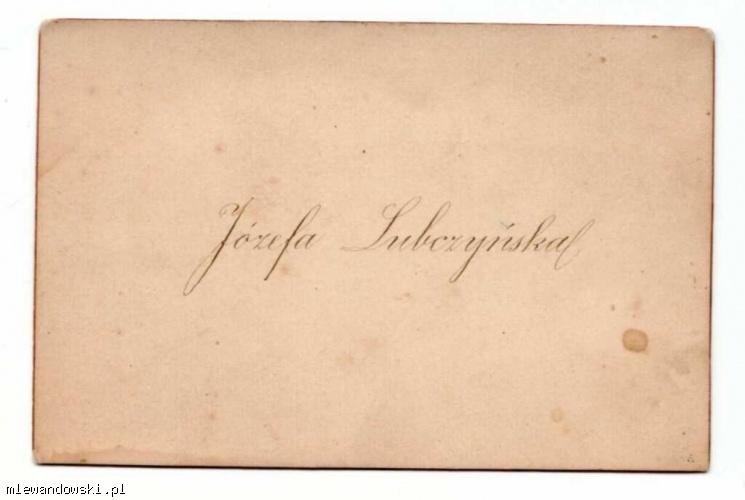 Józefa Lubczyńska
mlewandowski.pl